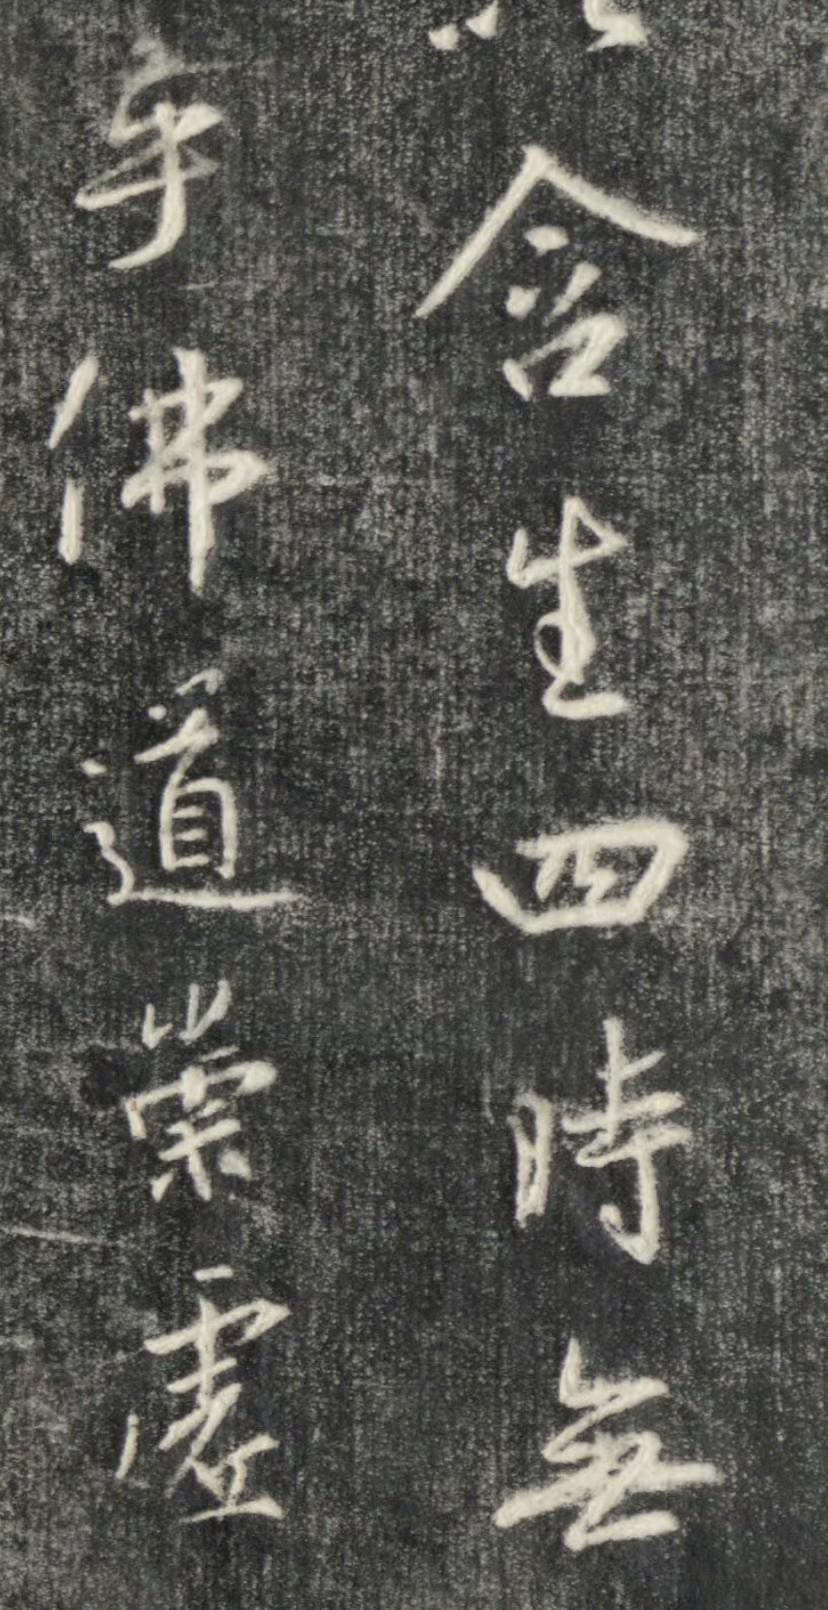 含生四時無
乎佛道崇虛